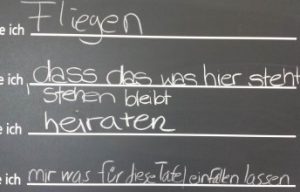 e ich Fliegen
e ich dass das was hier steht
stehen bleibt
e ich heiraten
e ich mir was für diese Tafel einfallen lassen